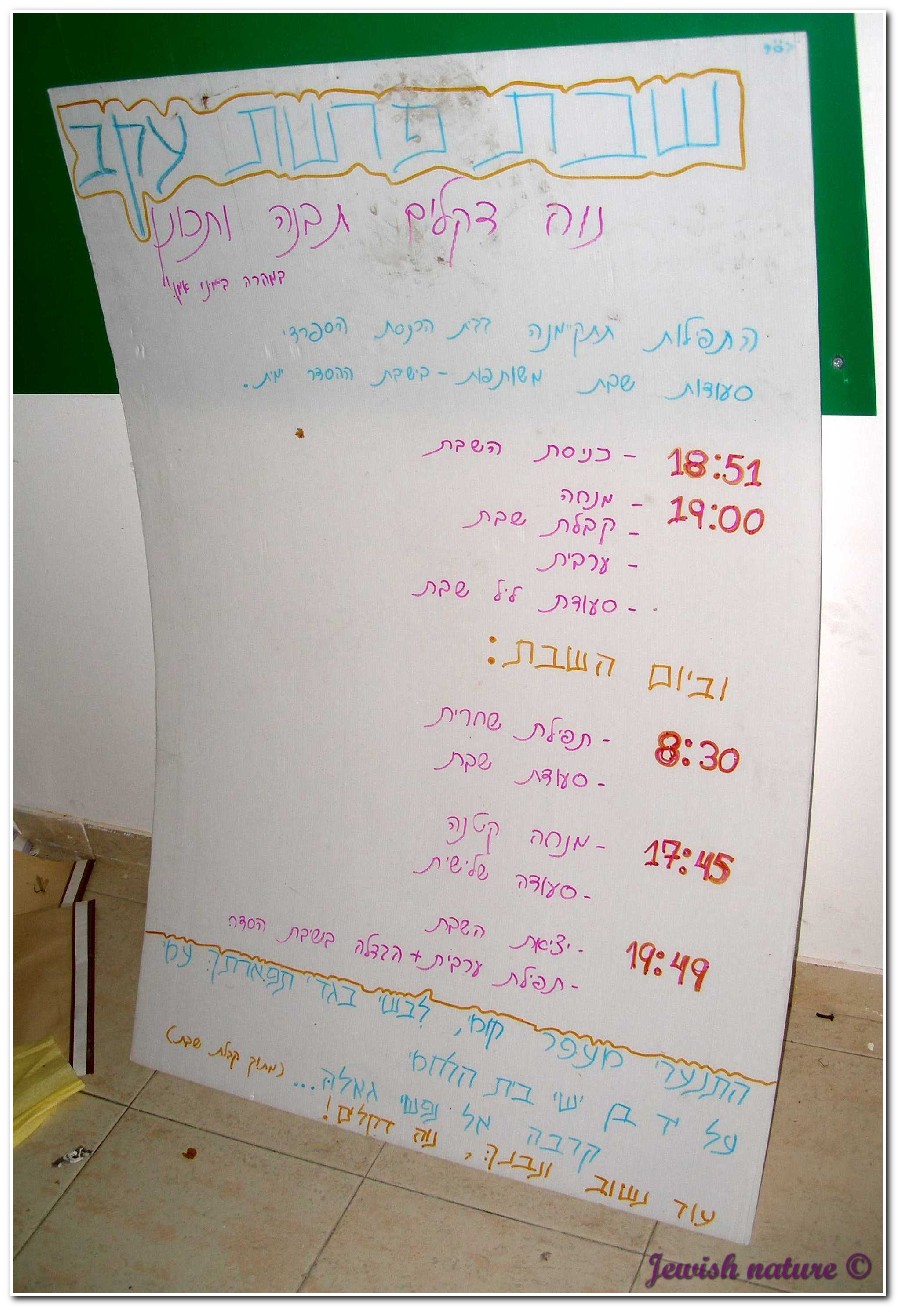 בס"ד
שבת פרשת עקב
נוה דקלים תבנה ותכונן
במהרה בימינו אמן!
התפילות תתקיימנה בבית הכנסת הספרדי
סעודות שבת משותפות - בישיבת ההסדר ימית.
18:51 - כניסת השבת
19:00 - מנחה
- קבלת שבת
- ערבית
- סעודת ליל שבת
וביום השבת:
8:30 - תפילת שחרית
- סעודת שבת
17:45 - מנחה קטנה
- סעודה שלישית
19:49 - יציאת השבת
- תפילת ערבית + הבדלה בישיבת הסדר
התנערי מעפר קומי, לבשי בגדי תפארתך עמי
על יד בן ישי בית הלחמי
קרבה אל נפשי גאלה...
(מתוך קבלת שבת)
עוד נשוב ונבנך, נוה דקלים!
Jewish nature ©